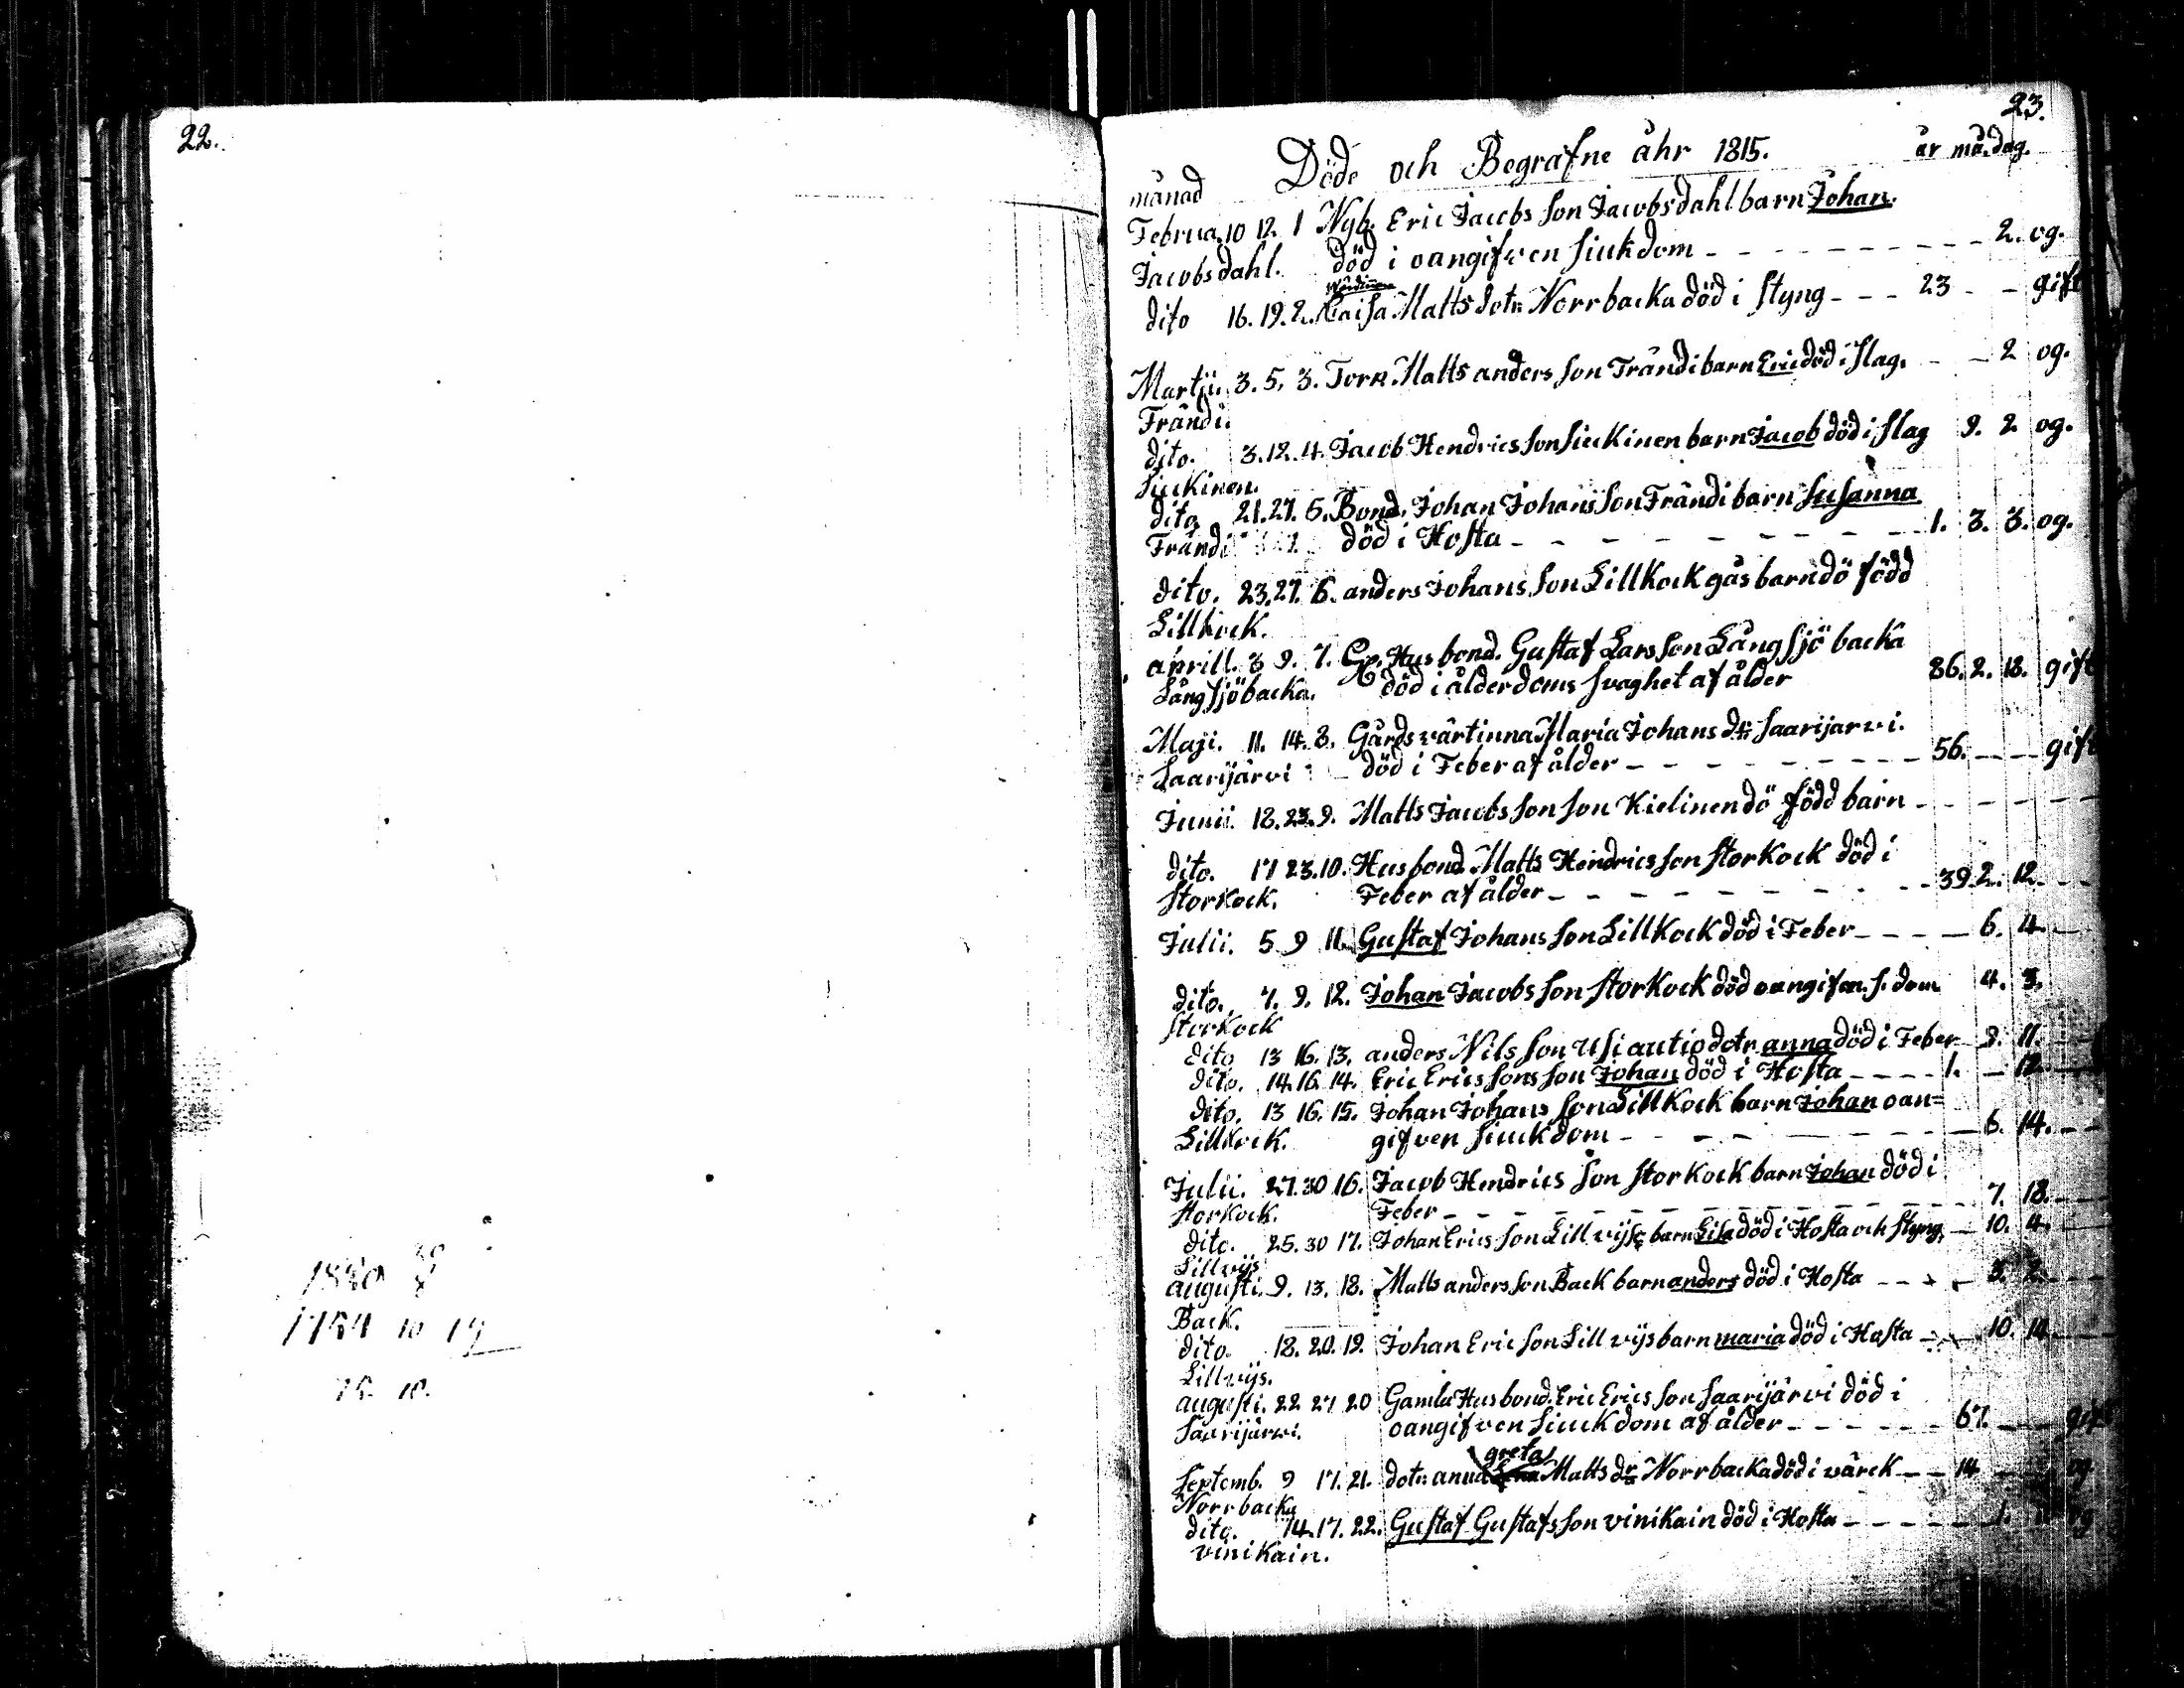 22.
1880 8
1754 10 19
75. 10.
23.
Döde och Begrafne åhr 1815.
månad år må. dag.
Februa. 10 12. 1 Nyb. Eric Jacobs son Jacobsdahl barn Johan.
Jacobsdahl. död i oangifven siukdom 2. og.
dito 16. 19. 2. Caisa Matts dotr. Norrbacka död i styng 23 gift
Martii. 3. 5. 3. Torp. Matts anders son Frändi barn Eric död i slag. 2 og.
Frändi.
dito. 3. 12. 4. Jacob Hendrics son siukinen barn Jacob död i slag 9. 2 og.
siukinen.
dito 21. 27. 5. Bond. Johan Johans son Frändi barn Susanna
Frändi död i Hosta 1. 3. 3. og.
dito. 23. 27. 6. anders Johans son Lillkock gåsbarn dö född
Lillkock.
aprill. 3 9. 7. Husbond. Gustaf Lars son Långsjöbacka
Långsjöbacka. död i ålderdoms svaghet af ålder 86. 2. 18. gift
Maji. 11. 14. 8. Gårdsvärtinna Maria Johans dr. saarijarvi.
Saarijärvi död i Feber af ålder 56. gift
Junii. 18. 23. 9. Matts Jacobs son son Kielinen dö född barn
dito. 17 23. 10. Husbond Matts Hendrics son storkock död i
storkock. Feber af ålder 39. 2. 12.
Julii. 5 9 11. Gustaf Johans son Lillkock död i Feber 6. 4
dito. 7. 9. 12. Johan Jacobs son storkock död oangifen s. dom 4. 3.
storkock
dito 13 16. 13. anders Nils son Usiautio dotr anna död i Feber 8. 11.
dito. 14. 16. 14. Eric Erics sons son Johan död i Hosta 1. 12
dito. 13 16. 15. Johan Johans son Lillkock barn Johan oan=
Lillkock. gifven siuckdom 6. 14.
Julii. 27. 30 16. Jacob Hendrics son storkock barn Johan död i
storkock. Feber 7. 18.
dito. 25. 30 17. Johan Erics son Lillvijs barn Lisa död i Hosta och styng 10. 4.
Lillvijs
augusti. 9. 13. 18. Matts anders son Back barn anders död i Hosta 3. 2.
Back.
dito. 18. 20. 19. Johan Eric son Lillvijs barn maria död i Hosta 10. 14
Lillvijs.
augusti. 22 27 20 Gamla Husbond. Eric Erics son saarijärvi död i
Saarijärvi. oangifven siuckdom af ålder 67. gift
greta
septemb. 9 17. 21. dotr. Matts dr Norrbacka död i värck 14 og
Norrbacka
dito. 14. 17. 22. Gustaf Gustafs son vinikain död i Hosta 1. og
vinikain.